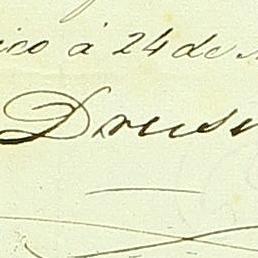 ico á 24 de
Drus